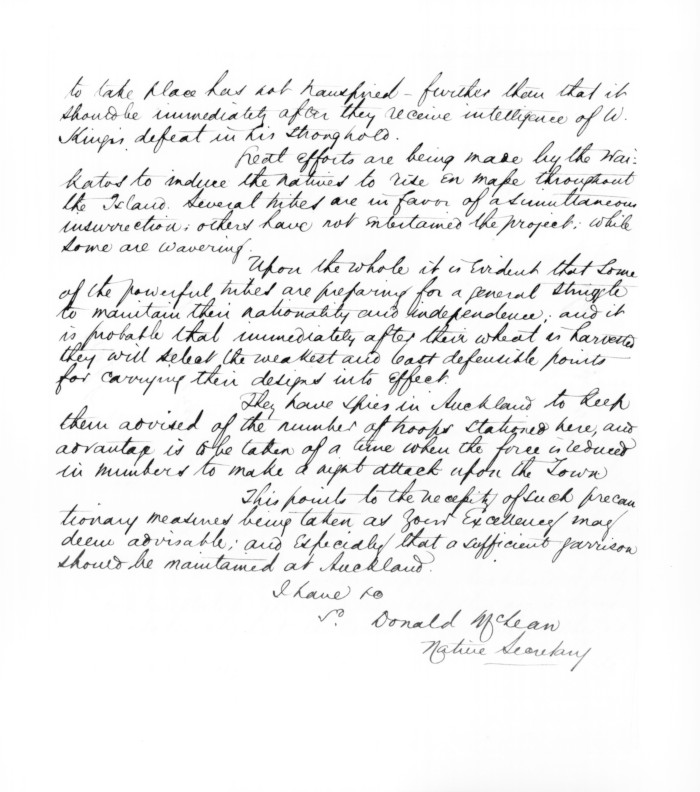 to take place has not transpired - further than that it
should be immediately after they receive intelligence of W.
King's defeat in his stronghold.
Great efforts are being made by the Wai-
katos to induce the natives to rise en maſse throughout
the Island. Several tribes are in favor of a simultaneous
insurrection; others have not entertained the project; while
some are wavering.
Upon the whole it is evident that some
of the powerful tribes are preparing for a general struggle
to maintain their nationality and independence; and it
is probable that immediately after their wheat is harvested
they will select the weakest and least defensible points
for carrying their designs into effect.
They have spies in Auckland to keep
them advised of the number of troops stationed here, and
advantage is to be taken of a time when the force is reduced
in numbers to make a night attack upon the Town
This points to the neceſsity of such precau
tionary measures being taken as Your Excellency may
deem advisable; and especially that a sufficient garrison
should be maintained at Auckland.
I have to
Donald McLean
Native Secretary